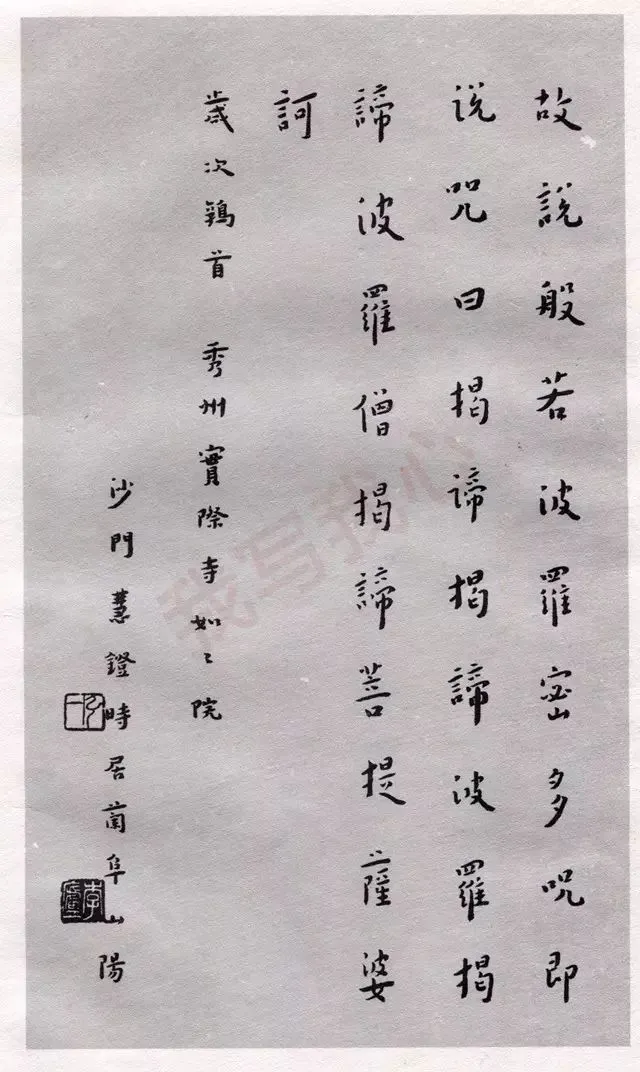 故說般若波羅密多呪即
說咒曰揭諦揭諦波羅揭
諦波羅僧揭諦菩提薩婆
訶
歲次鶉首 秀州實際寺如々院
沙門慧鐙時居蘭阜山陽
李廬
我写我心